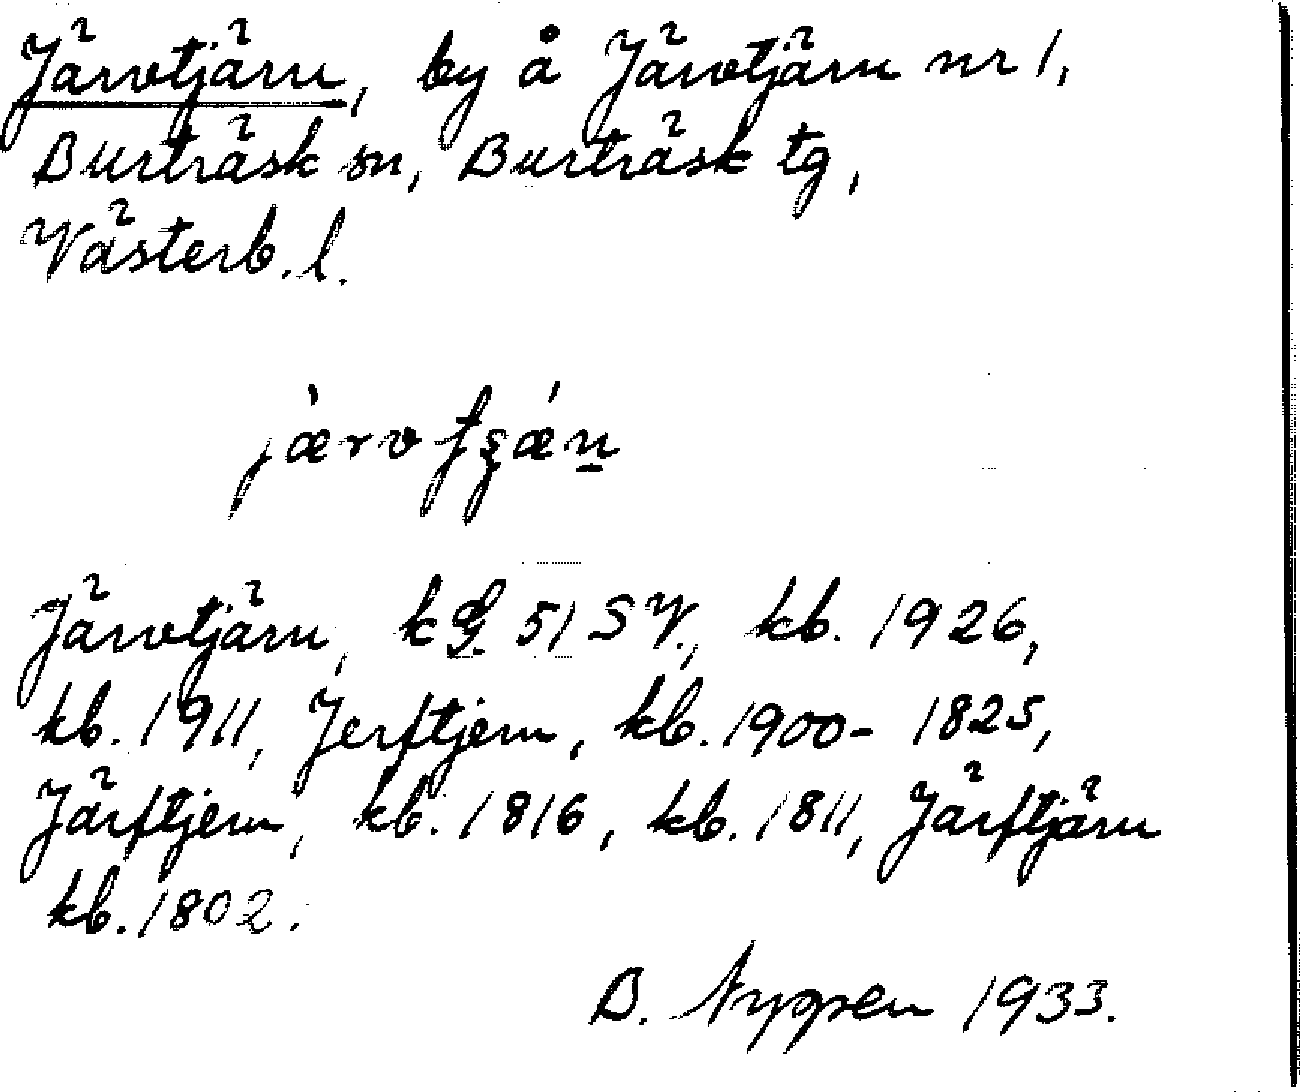 Järvtjärn, by å Järvtjärn nr 1,
Burträsk sn, Burträsk tg,
Västerb. l.
Järvtjärn, kG. 51 SV., kb. 1926,
kb. 1911, Jerftjern, kb. 1900-1825,
Järftjern, kb. 1816, kb. 1811, Järftjärn
kb. 1802.
B. Nyppen 1933.